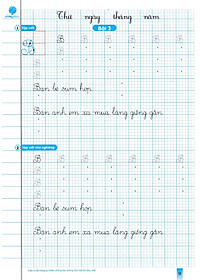 Thứ ngày tháng năm
Bài 3
1 Tập viết
B B B B B B B
B
B
Bạn bè sum họp
Bán anh em xa mua láng giềng gần
2 Tập viết chữ nghiêng
B B B B B B
B
Bạn bè sum họp
Bán anh em xa mua láng giềng gần